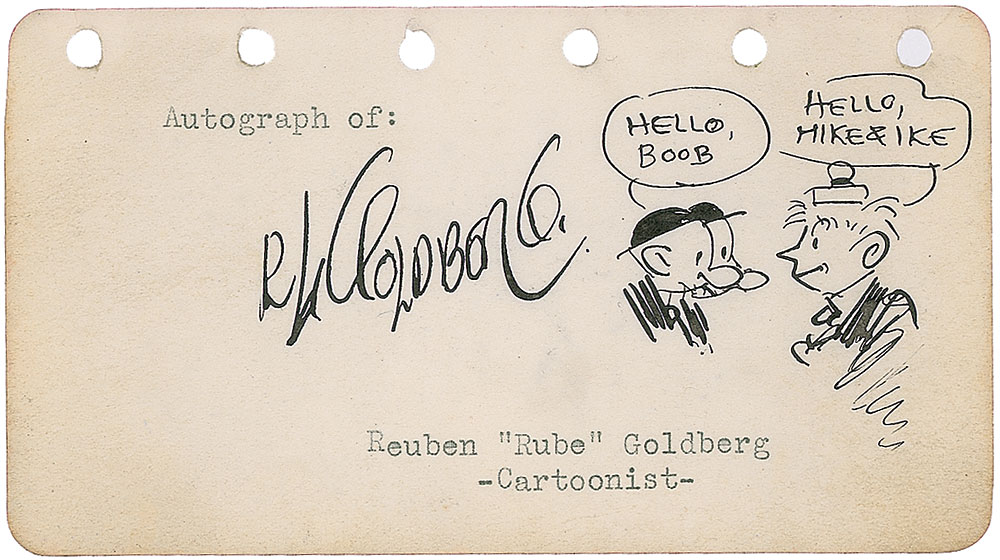 Autograph of:
HELLO,
BOOB
HELLO,
MIKE & IKE
R L GOLDBERG.
Reuben "Rube" Goldberg
-Cartoonist-